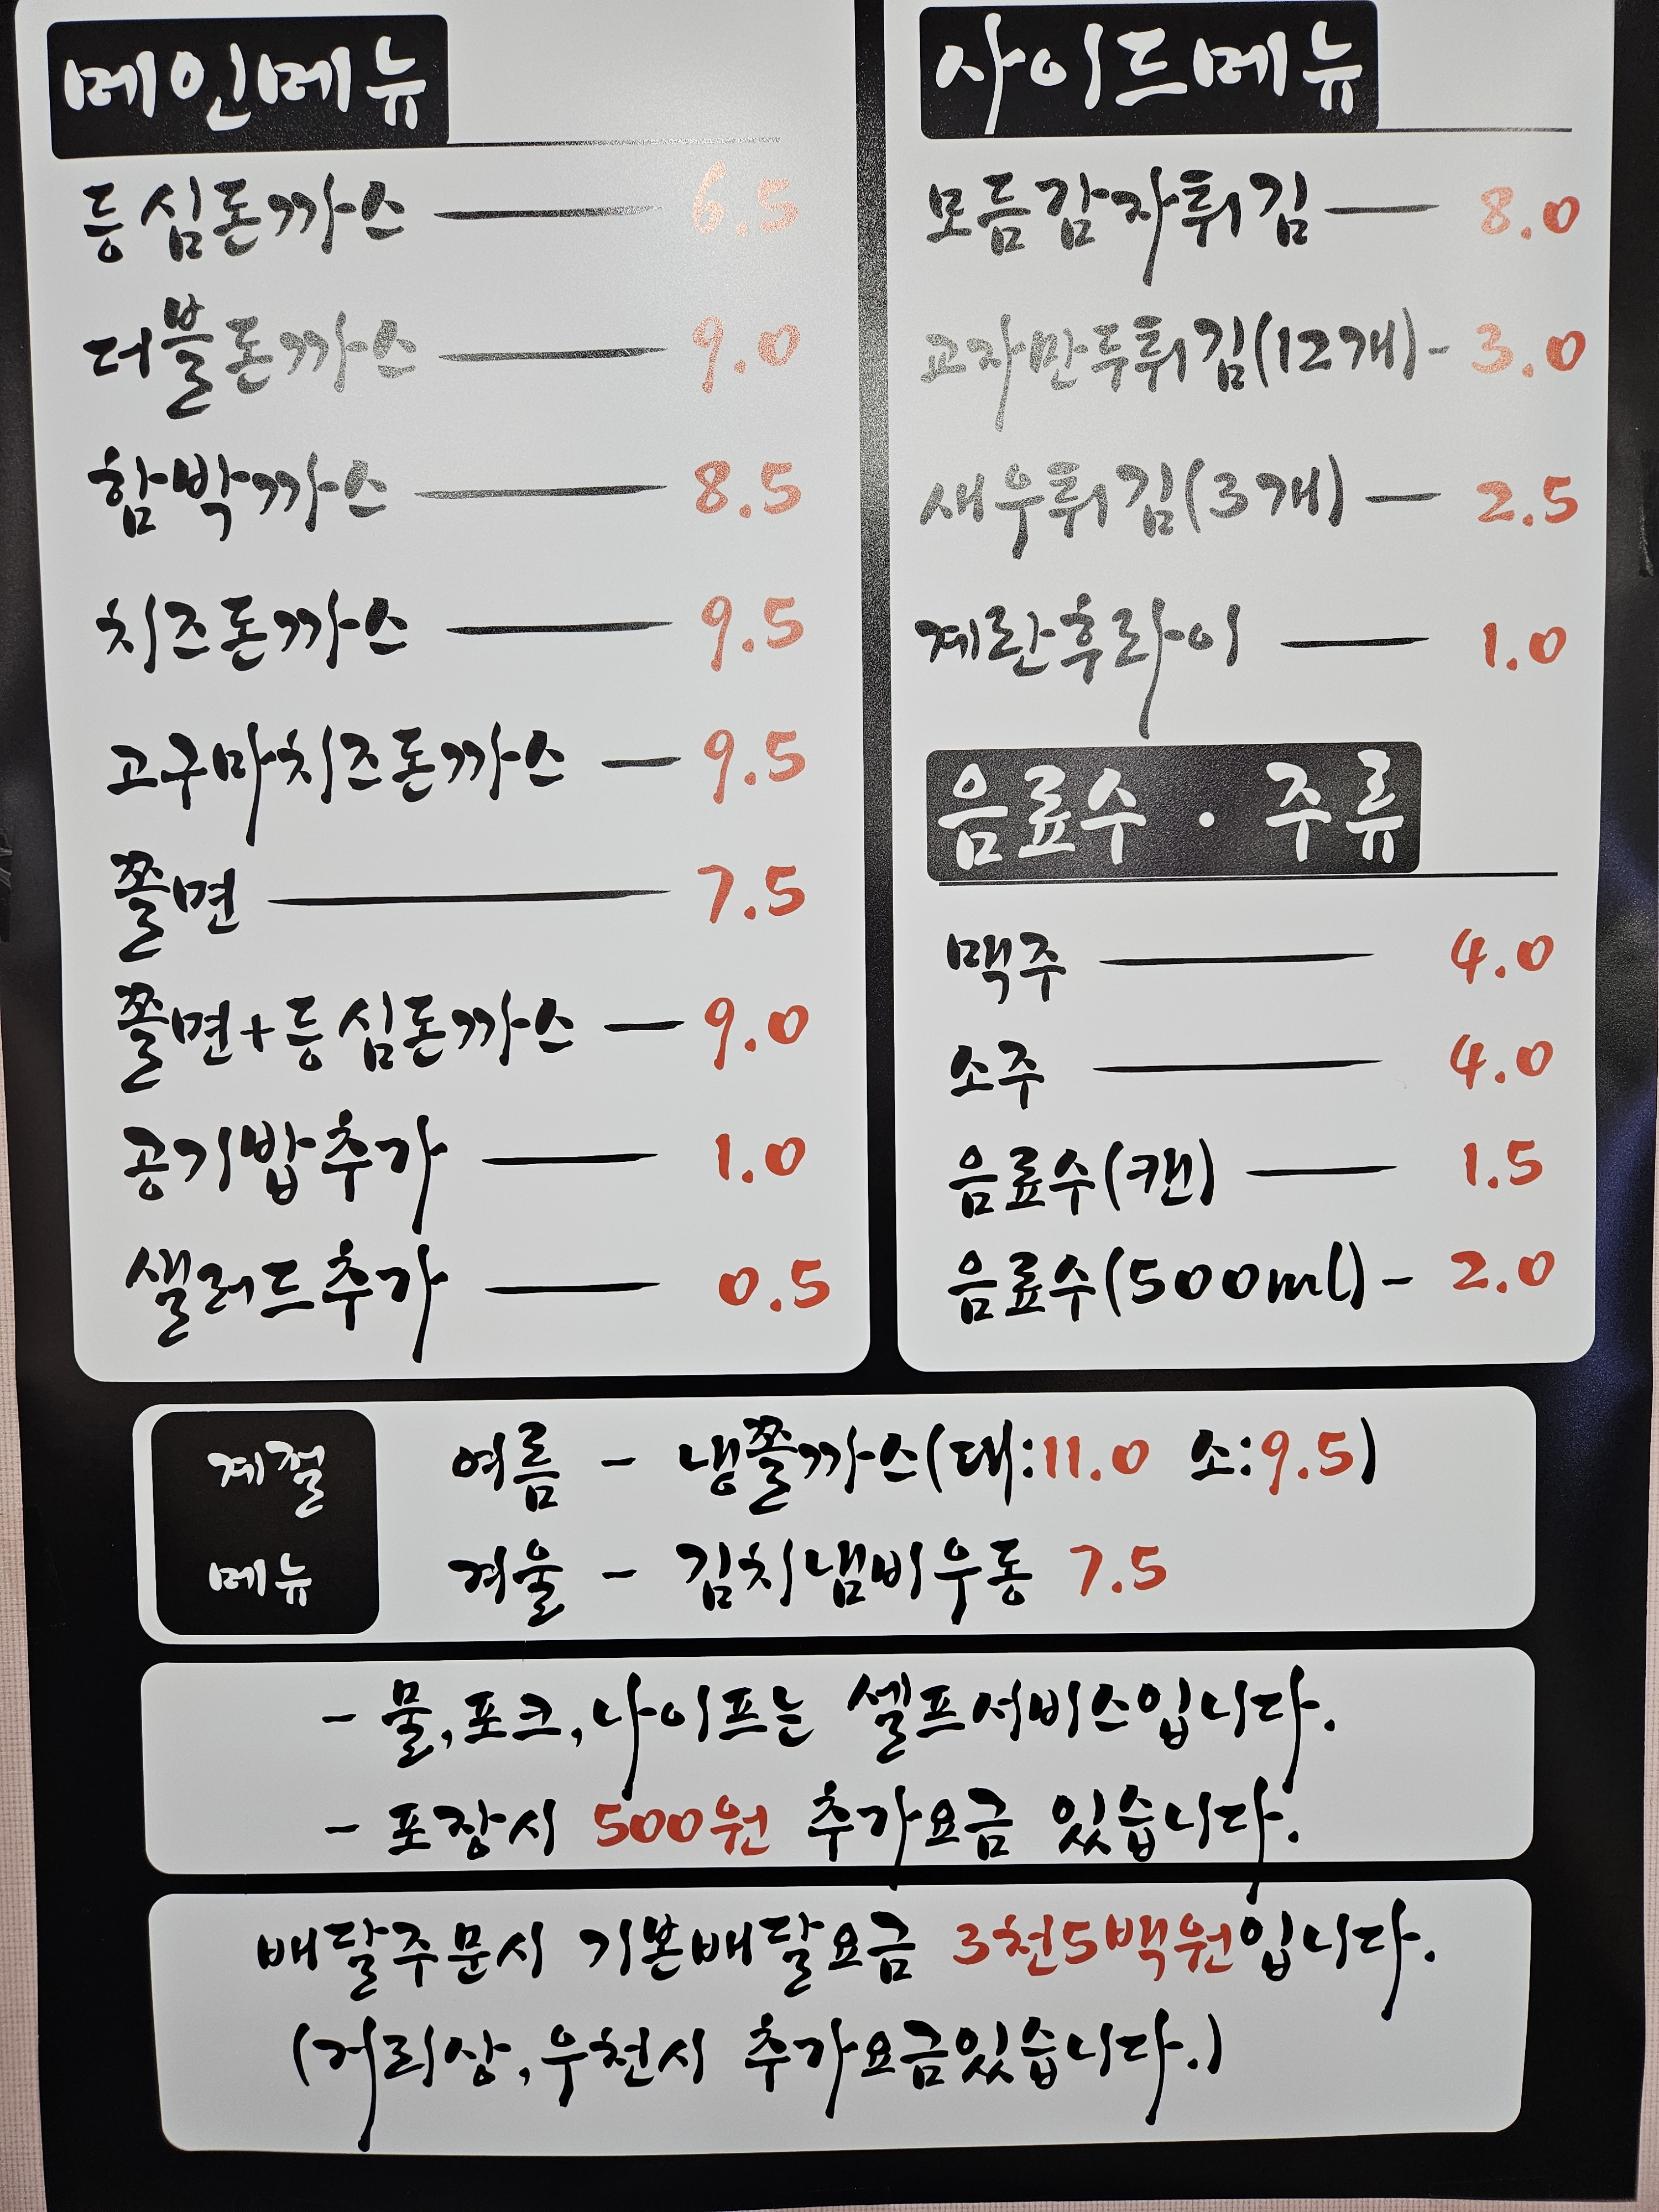 메인메뉴
등심돈까스 6.5
더블돈까스 9.0
함박까스 8.5
치즈돈까스 9.5
고구마치즈돈까스 9.5
쫄면 7.5
쫄면+등심돈까스 9.0
공기밥추가 1.0
샐러드추가 0.5
사이드메뉴
모듬감자튀김 8.0
교자만두튀김(12개)- 3.0
새우튀김(3개) 2.5
계란후라이 1.0
음료수 · 주류
맥주 4.0
소주 4.0
음료수(캔) 1.5
음료수(500ml)- 2.0
계절
메뉴
여름 - 냉쫄까스(대:11.0 소:9.5)
겨울 - 김치냄비우동 7.5
- 물,포크,나이프는 셀프서비스입니다.
- 포장시 500원 추가요금 있습니다.
배달주문시 기본배달요금 3천5백원입니다.
(거리상,우천시 추가요금있습니다.)